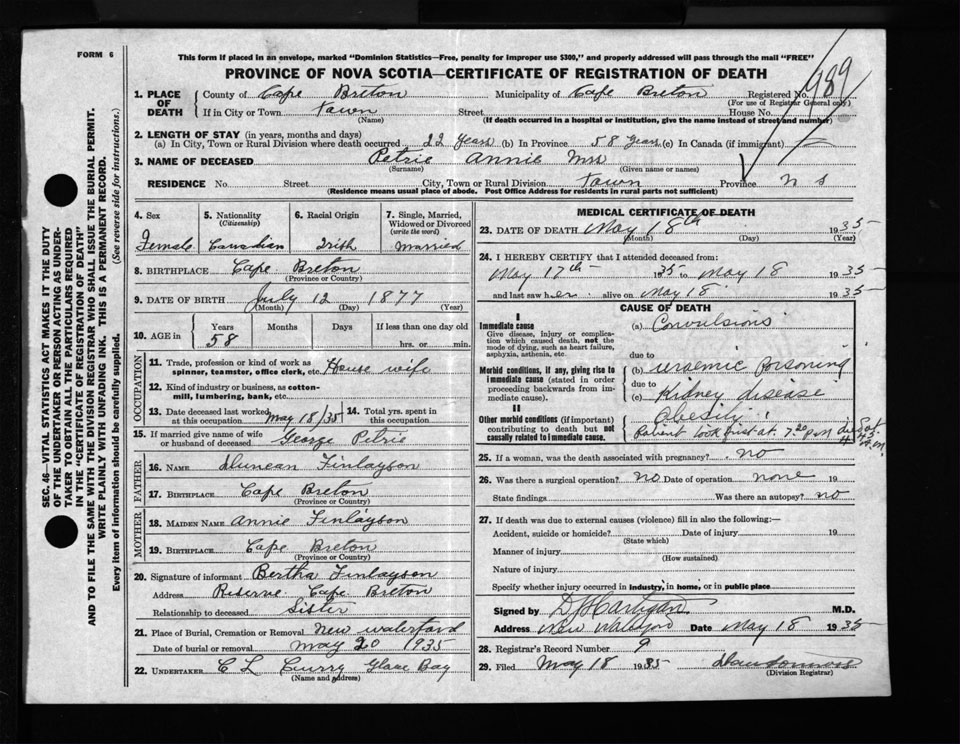 FORM 6
This form if placed in an envelope, marked "Dominion Statistics—Free, penalty for improper use $300," and properly addressed will pass through the mail "FREE"
PROVINCE OF NOVA SCOTIA—CERTIFICATE OF REGISTRATION OF DEATH
489
1. PLACE OF DEATH
County of Cape Breton Municipality of Cape Breton Registered No.
(For use of Registrar General only)
If in City or Town Town Street House No.
(Name) (If death occurred in a hospital or institution, give the name instead of street and number)
2. LENGTH OF STAY (in years, months and days)
(a) In City, Town or Rural Division where death occurred 22 Years (b) In Province 58 Years (c) In Canada (if immigrant)
3. NAME OF DECEASED Petrie Annie Mrs
(Surname) (Given name or names)
RESIDENCE No. Street City, Town or Rural Division Town Province N S
(Residence means usual place of abode. Post Office Address for residents in rural parts not sufficient)
4. Sex
Female
5. Nationality
(Citizenship)
Canadian
6. Racial Origin
Irish
7. Single, Married, Widowed or Divorced
(write the word)
Married
8. BIRTHPLACE Cape Breton
(Province or Country)
9. DATE OF BIRTH July 12 1877
(Month) (Day) (Year)
10. AGE in
Years Months Days If less than one day old
58 hrs. or min.
OCCUPATION
11. Trade, profession or kind of work as spinner, teamster, office clerk, etc. House wife
12. Kind of industry or business, as cotton-mill, lumbering, bank, etc.
13. Date deceased last worked at this occupation May 18/35
14. Total yrs. spent in this occupation
15. If married give name of wife or husband of deceased George Petrie
FATHER
16. NAME Duncan Finlayson
17. BIRTHPLACE Cape Breton
(Province or Country)
MOTHER
18. MAIDEN NAME Annie Finlayson
19. BIRTHPLACE Cape Breton
(Province or Country)
20. Signature of informant Bertha Finlayson
Address Reserve Cape Breton
Relationship to deceased Sister
21. Place of Burial, Cremation or Removal New Waterford
Date of burial or removal May 20 1935
22. UNDERTAKER C L Curry Glace Bay
(Name and address)
MEDICAL CERTIFICATE OF DEATH
23. DATE OF DEATH May 18th 1935
(Month) (Day) (Year)
24. I HEREBY CERTIFY that I attended deceased from:
May 17th 1935 to May 18 1935
and last saw her alive on May 18 1935
CAUSE OF DEATH
I
Immediate cause
Give disease, injury or complication which caused death, not the mode of dying, such as heart failure, asphyxia, asthenia, etc.
(a) Convulsions
due to
Morbid conditions, if any, giving rise to immediate cause (stated in order proceeding backwards from immediate cause).
(b) uraemic poisoning
due to
(c) Kidney disease
II
Other morbid conditions (if important) contributing to death but not causally related to immediate cause.
Obesity
Patient took first at 7.20 P.M died at
A.M.
25. If a woman, was the death associated with pregnancy? no
26. Was there a surgical operation? no Date of operation none 19
State findings Was there an autopsy? no
27. If death was due to external causes (violence) fill in also the following:—
Accident, suicide or homicide? Date of injury 19
(State which)
Manner of injury
(How sustained)
Nature of injury
Specify whether injury occurred in industry, in home, or in public place
Signed by M.D.
Address New Waterford Date May 18 1935
28. Registrar's Record Number 9
29. Filed May 18 1935
(Division Registrar)
SEC. 46—VITAL STATISTICS ACT MAKES IT THE DUTY
OF THE UNDERTAKER OR PERSON ACTING AS UNDER-
TAKER TO OBTAIN ALL THE PARTICULARS REQUIRED
IN THE "CERTIFICATE OF REGISTRATION OF DEATH"
AND TO FILE THE SAME WITH THE DIVISION REGISTRAR WHO SHALL ISSUE THE BURIAL PERMIT.
WRITE PLAINLY WITH UNFADING INK. THIS IS A PERMANENT RECORD.
Every item of information should be carefully supplied. (See reverse side for instructions.)